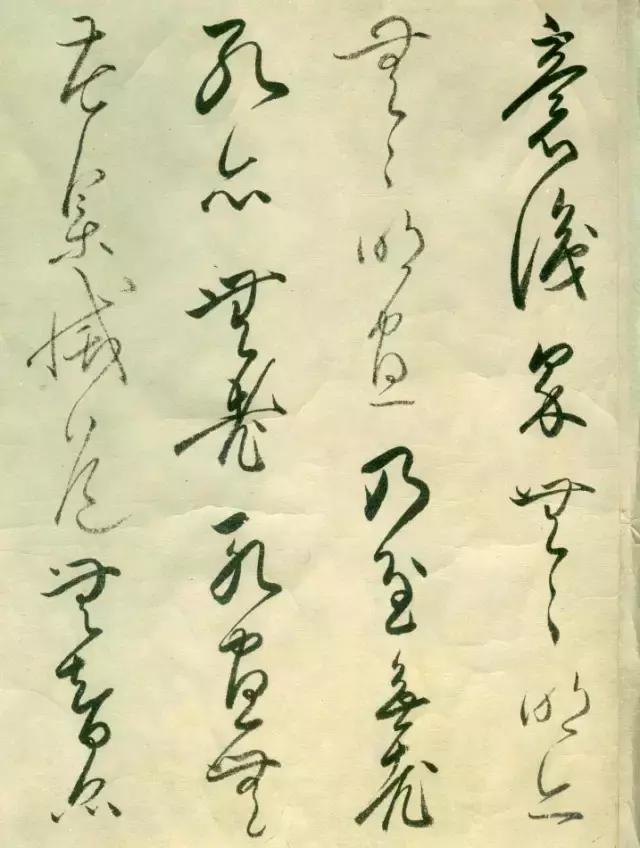 意識界無〻明亦
無〻明盡乃至無老
死亦無老死盡無
苦集滅道無智亦